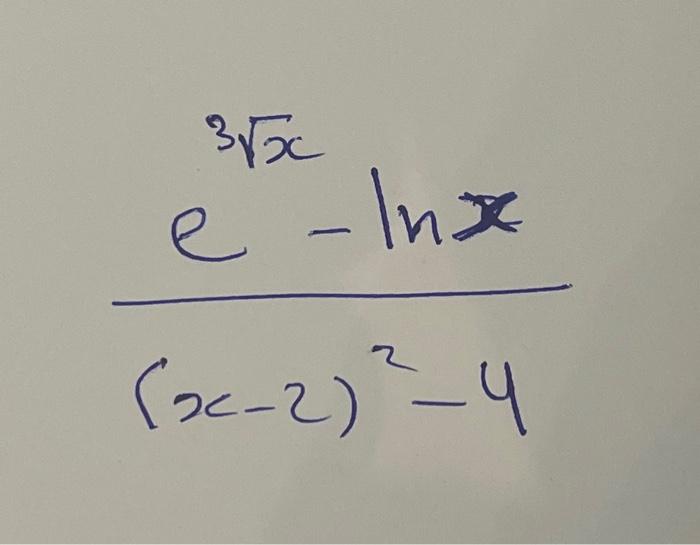 e^∛x - ln x
(x-2)² - 4